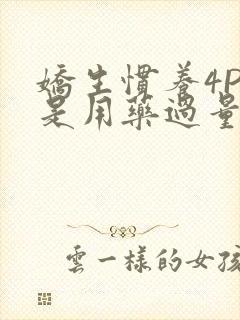 嬌生慣養4P
是用藥過量
雲一樣的女孩